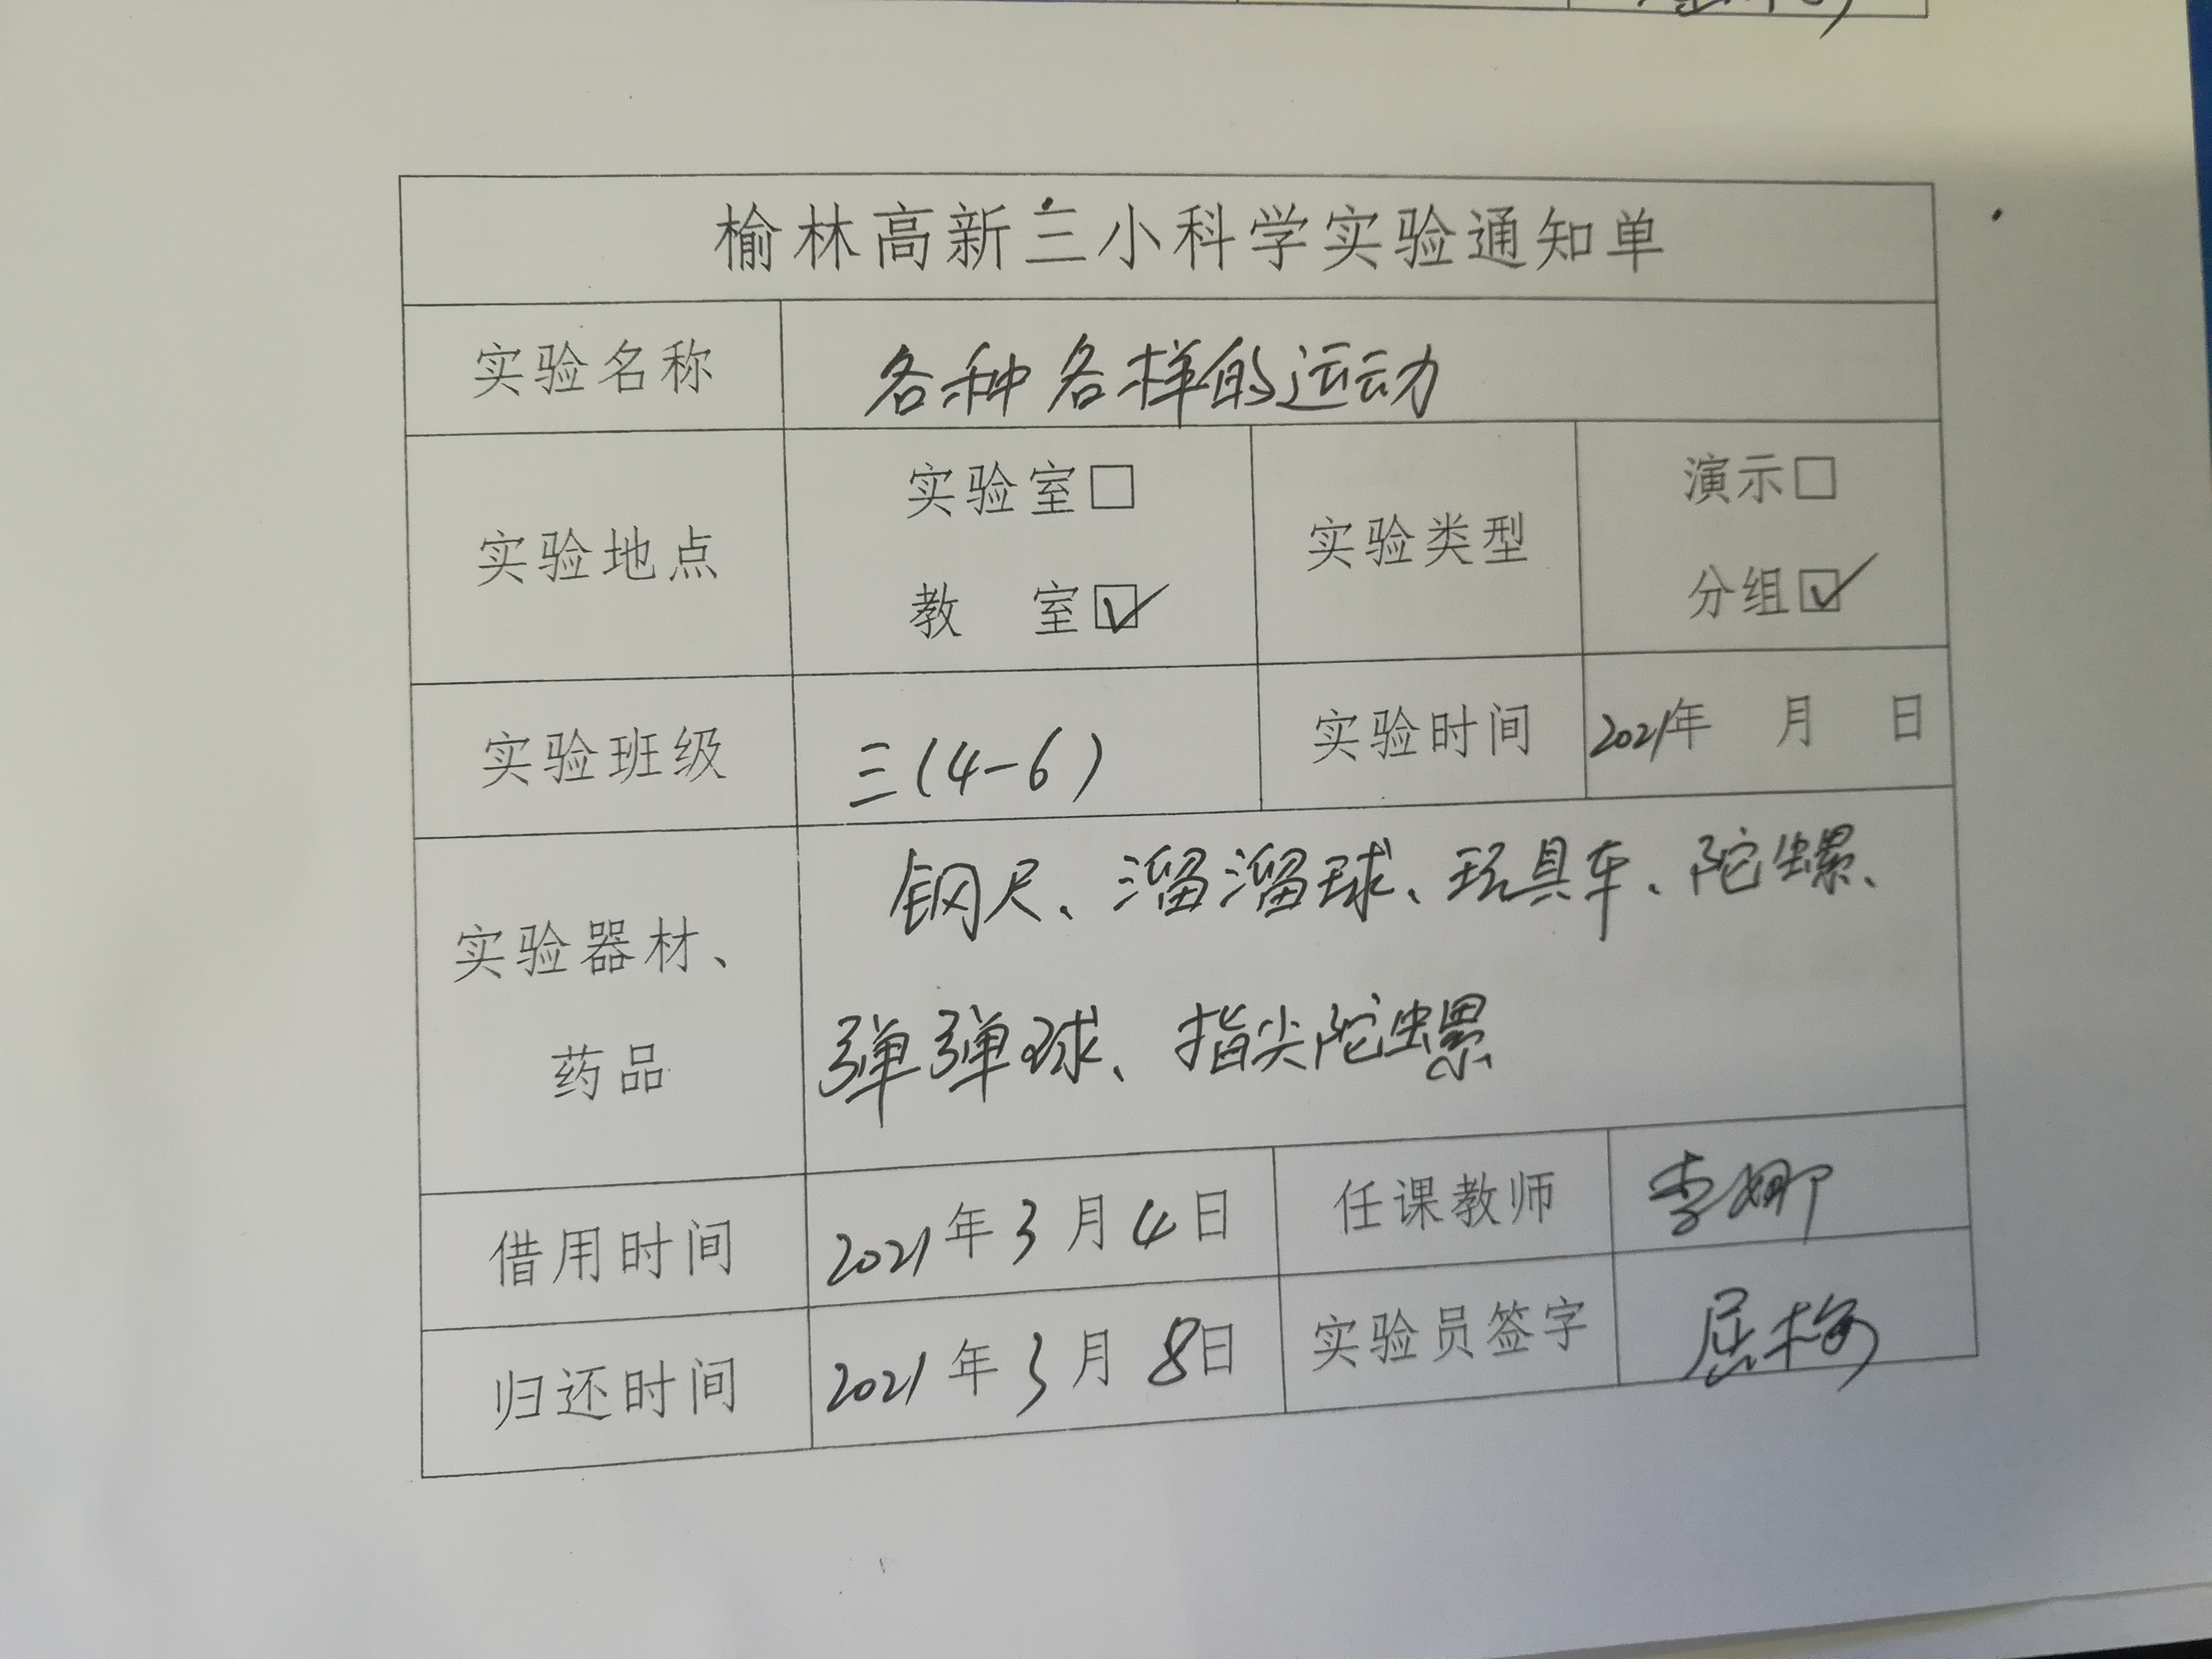 榆林高新三小科学实验通知单
实验名称 各种各样的运动
实验室□ 演示□
实验地点 实验类型
教 室☑ 分组☑
实验班级 三(4-6) 实验时间 2021年 月 日
钢尺、溜溜球、玩具车、陀螺、
实验器材、
弹弹球、指尖陀螺
药品
借用时间 2021年3月4日 任课教师 李娜
归还时间 2021年3月8日 实验员签字 屈梅